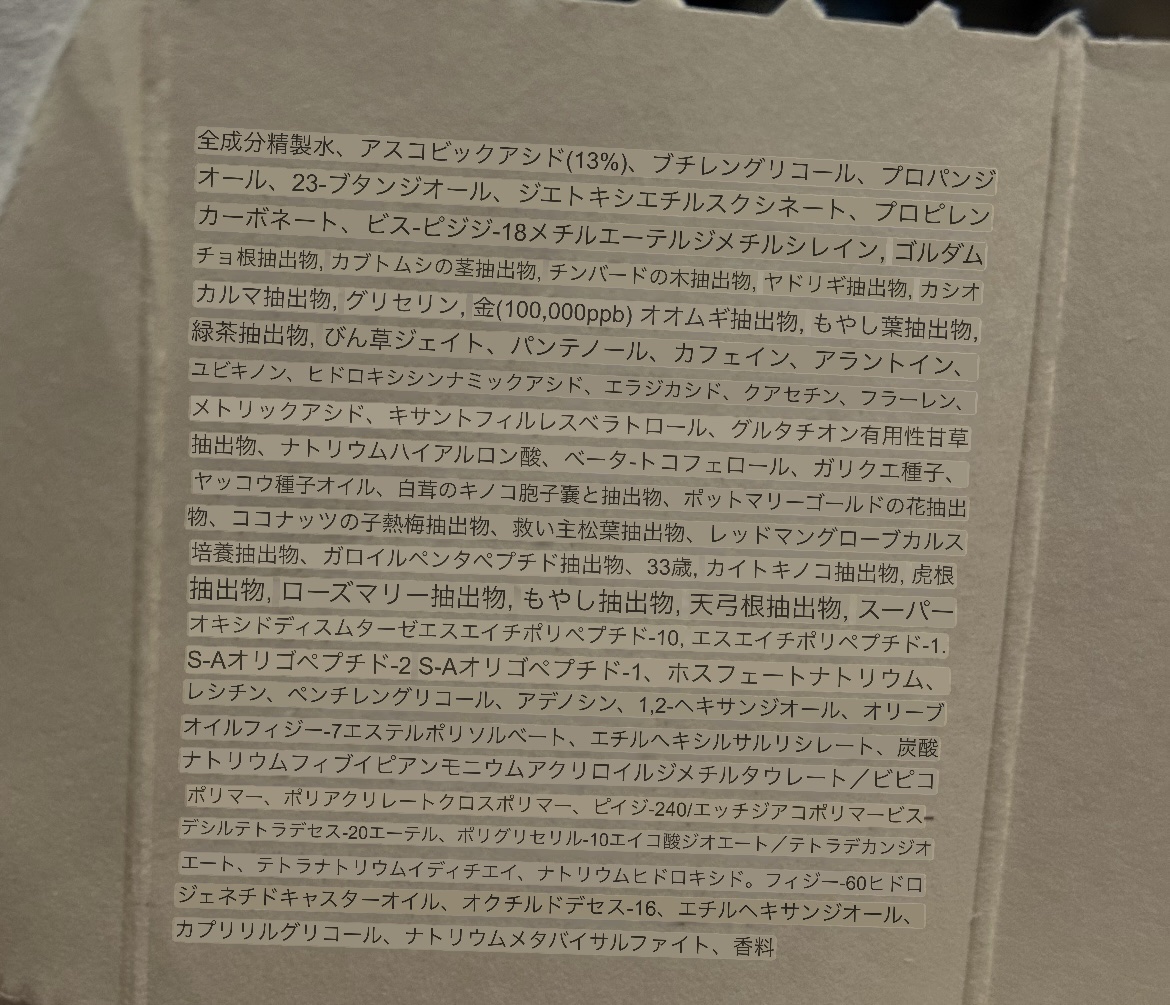 全成分精製水、アスコビックアシド(13%)、ブチレングリコール、プロパンジ
オール、23-ブタンジオール、ジエトキシエチルスクシネート、プロピレン
カーボネート、ビス-ピジジ-18メチルエーテルジメチルシレイン, ゴルダム
チョ根抽出物, カブトムシの茎抽出物, チンバードの木抽出物, ヤドリギ抽出物, カシオ
カルマ抽出物, グリセリン, 金(100,000ppb) オオムギ抽出物, もやし葉抽出物,
緑茶抽出物, びん草ジェイト、パンテノール、カフェイン、アラントイン、
ユビキノン、ヒドロキシシンナミックアシド、エラジカシド、クアセチン、フラーレン、
メトリックアシド、キサントフィルレスベラトロール、グルタチオン有用性甘草
抽出物、ナトリウムハイアルロン酸、ベータ-トコフェロール、ガリクエ種子、
ヤッコウ種子オイル、白茸のキノコ胞子嚢と抽出物、ポットマリーゴールドの花抽出
物、ココナッツの子熱梅抽出物、救い主松葉抽出物、レッドマングローブカルス
培養抽出物、ガロイルペンタペプチド抽出物、33歳, カイトキノコ抽出物, 虎根
抽出物, ローズマリー抽出物, もやし抽出物, 天弓根抽出物, スーパー
オキシドディスムターゼエスエイチポリペプチド-10, エスエイチポリペプチド-1.
S-Aオリゴペプチド-2 S-Aオリゴペプチド-1、ホスフェートナトリウム、
レシチン、ペンチレングリコール、アデノシン、1,2-ヘキサンジオール、オリーブ
オイルフィジー-7エステルポリソルベート、エチルヘキシルサルリシレート、炭酸
ナトリウムフィブイピアンモニウムアクリロイルジメチルタウレート／ビピコ
ポリマー、ポリアクリレートクロスポリマー、ピイジ-240/エッチジアコポリマービス-
デシルテトラデセス-20エーテル、ポリグリセリル-10エイコ酸ジオエート／テトラデカンジオ
エート、テトラナトリウムイディチエイ、ナトリウムヒドロキシド。フィジー-60ヒドロ
ジェネチドキャスターオイル、オクチルドデセス-16、エチルヘキサンジオール、
カプリリルグリコール、ナトリウムメタバイサルファイト、香料